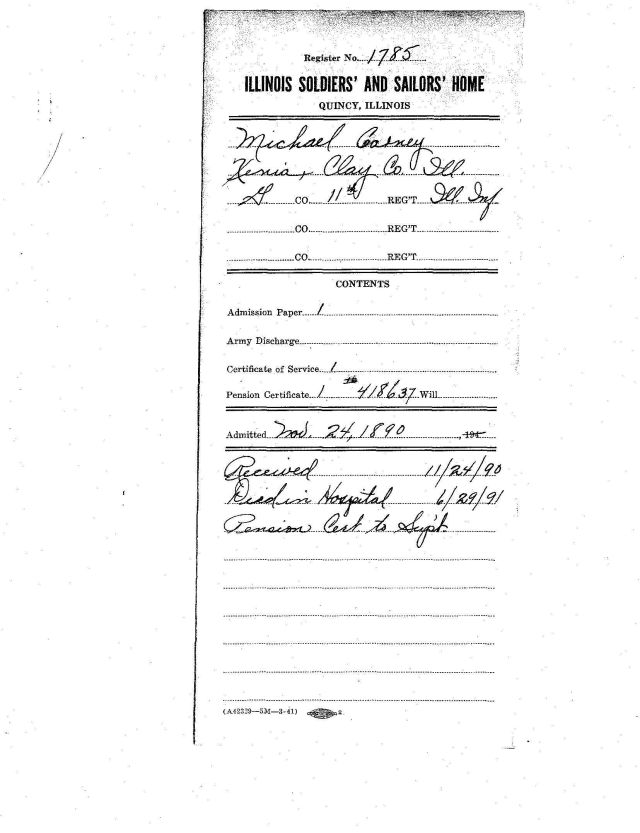 Register No. 1785
ILLINOIS SOLDIERS' AND SAILORS' HOME
QUINCY, ILLINOIS
Michael Carney
Xenia, Clay Co. Ill.
CO. 11th REG'T. Ill. Inf
CO. REG'T.
CO. REG'T.
CONTENTS
Admission Paper 1
Army Discharge
Certificate of Service 1
Pension Certificate 1 # 418637 Will
Admitted Nov. 24, 1890 , 194
Received 11/24/90
Died in Hospital 6/29/91
Pension Cert to Sup't.
(A42329—5M—3-41) 2